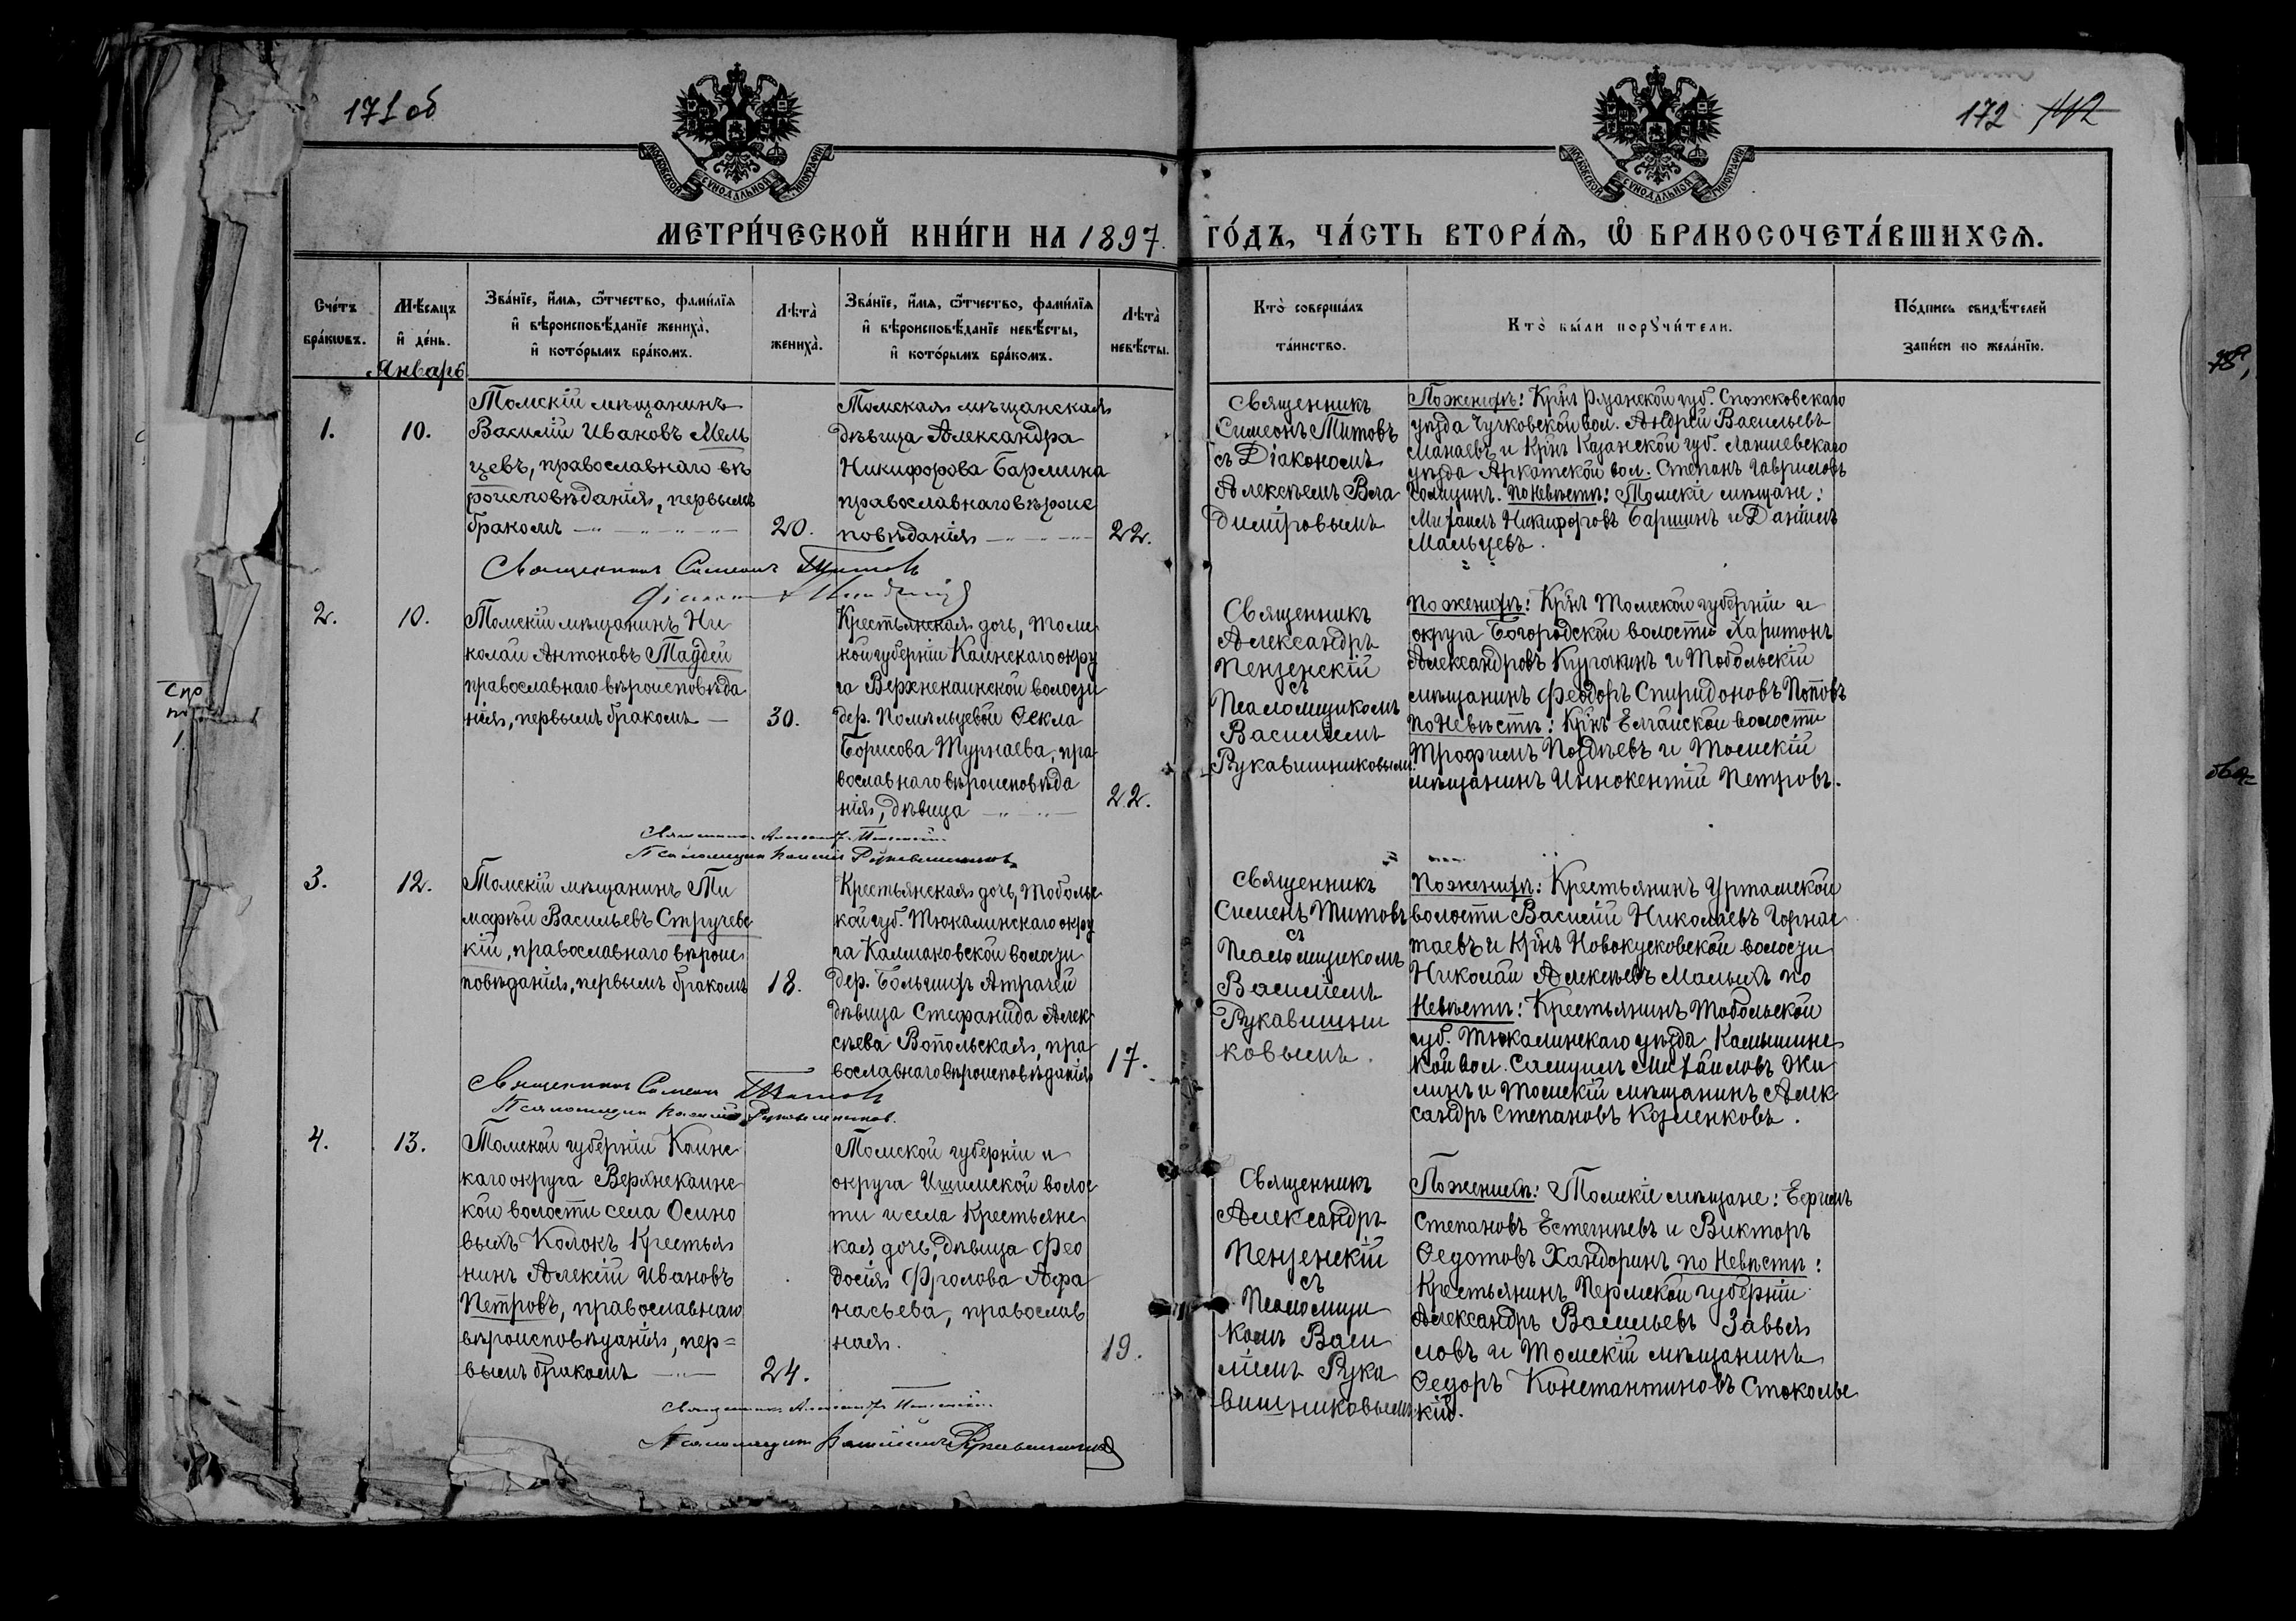 171 об
172 142
МОСКОВСКОЙ СУНОДАЛЬНОЙ ТИПОГРАФІИ
МОСКОВСКОЙ СУНОДАЛЬНОЙ ТИПОГРАФІИ
МЕТРИ́ЧЕСКОЙ КНИ́ГИ НА 1897 ГО́ДЪ, ЧА́СТЬ ВТОРА́Ѧ, Ѡ҆ БРАКОСОЧЕТА́ВШИХСѦ.
Сче́тъ бра́кѡвъ.
Мѣ́сяцъ и҆ де́нь.
Январь
Зва́нїе, и҆́мя, ѻ҆́тчество, фами́лїя
и҆ вѣроисповѣ́данїе жениха̀,
и҆ кото́рымъ бра́комъ.
Лѣта̀ жениха̀.
Зва́нїе, и҆́мя, ѻ҆́тчество, фами́лїя
и҆ вѣроисповѣ́данїе невѣ́сты,
и҆ кото́рымъ бра́комъ.
Лѣта̀ невѣ́сты.
Кто̀ соверша́лъ
та́инство.
Кто̀ бы́ли порꙋчи́тели.
По́дпись свидѣ́телей
за́писи по жела́нїю.
1.
10.
Томскій мѣщанинъ
Василій Ивановъ Мель
цевъ, православнаго вѣ
роисповѣданія, первымъ
бракомъ
20.
Томская мѣщанская
дѣвица Александра
Никифорова Бармина
православнаго вѣроис
повѣданія
22.
Священникъ
Симеонъ Титовъ
съ Діакономъ
Алексѣемъ Вла
диміровымъ
По женихѣ: Крѣн Рязанской губ. Сапожковскаго
уѣзда Чучковской вол. Андрей Васильевъ
Манаевъ и Крнъ Казанской губ. Лаишевскаго
уѣзда Аркатской вол. Степанъ Гавриловъ
По невѣстѣ: Томскіе мѣщане:
Михаилъ Никифоровъ Барминъ и Даніилъ
Мальцевъ.
Священникъ Симеонъ Титовъ
2.
10.
Томскій мѣщанинъ Ни
колай Антоновъ Таддей
православнаго вѣроисповѣда
нія, первымъ бракомъ
30.
Крестьянская дочь, Томс
кой губерніи Каинскаго окру
га Верхнекаинской волости
дер. Помельцевой Ѳекла
Борисова Турнаева, пра
вославнаго вѣроисповѣда
нія, дѣвица
22.
Священникъ
Александръ
Пензенскій
съ
Псаломщикомъ
Василіемъ
Рукавишниковымъ.
По женихѣ: Крнъ Томской губерніи и
округа Богородской волости Харитонъ
Александровъ Курочкинъ и Тобольскій
мѣщанинъ Феодоръ Спиридоновъ Поповъ
По невѣстѣ: Крнъ Елгайской волости
Трофимъ Поздѣевъ и Томскій
мѣщанинъ Иннокентій Петровъ.
Священникъ Александръ Пензенскій
Псаломщикъ Василій Рукавишниковъ
3.
12.
Томскій мѣщанинъ Ти
мофѣй Васильевъ Стручевс
кій, православнаго вѣроис
повѣданія, первымъ бракомъ
18.
Крестьянская дочь, Тобольс
кой губ. Тюкалинскаго окру
га Калмаковской волости
дер. Большихъ Атрачей
дѣвица Стефанида Алек
сѣева Вопольская, пра
вославнаго вѣроисповѣданія
17.
Священникъ
Симеонъ Титовъ
съ
Псаломщикомъ
Василіемъ
Рукавишни
ковымъ.
По женихѣ: Крестьянинъ Уртамской
волости Василій Николаевъ Горнос
таевъ и Крнъ Новокусковской волости
Николай Алексѣевъ Малыхъ по
Невѣстѣ: Крестьянинъ Тобольской
губ. Тюкалинскаго уѣзда Камышинс
кой вол. Самуилъ Михаиловъ Жи
линъ и Томскій мѣщанинъ Алек
сандръ Степановъ Козменковъ.
Священникъ Симеонъ Титовъ
Псаломщикъ Василій Рукавишниковъ.
4.
13.
Томской губерніи Каинс
каго округа Верхнекаинс
кой волости села Осино
выхъ Колокъ Крестья
нинъ Алексій Ивановъ
Петровъ, православнаго
вѣроисповѣданія, пер=
вымъ бракомъ
24.
Томской губерніи и
округа Ишимской волос
ти и села Крестьянс
кая дочь, дѣвица Фео
досія Фролова Афа
насьева, православ
ная.
19.
Священникъ
Александръ
Пензенскій
съ
Псаломщи
комъ Васи
ліемъ Рука
вишниковымъ
По женихѣ: Томскіе мѣщане: Ефимъ
Степановъ Естегнѣевъ и Викторъ
Ѳедотовъ Хандоринъ по Невѣстѣ:
Крестьянинъ Пермской губерніи
Александръ Васильевъ Завья
ловъ и Томскій мѣщанинъ
Ѳедоръ Константиновъ Стокольс
кій.
Священникъ Александръ Пензенскій
Псаломщикъ Василій Рукавишниковъ